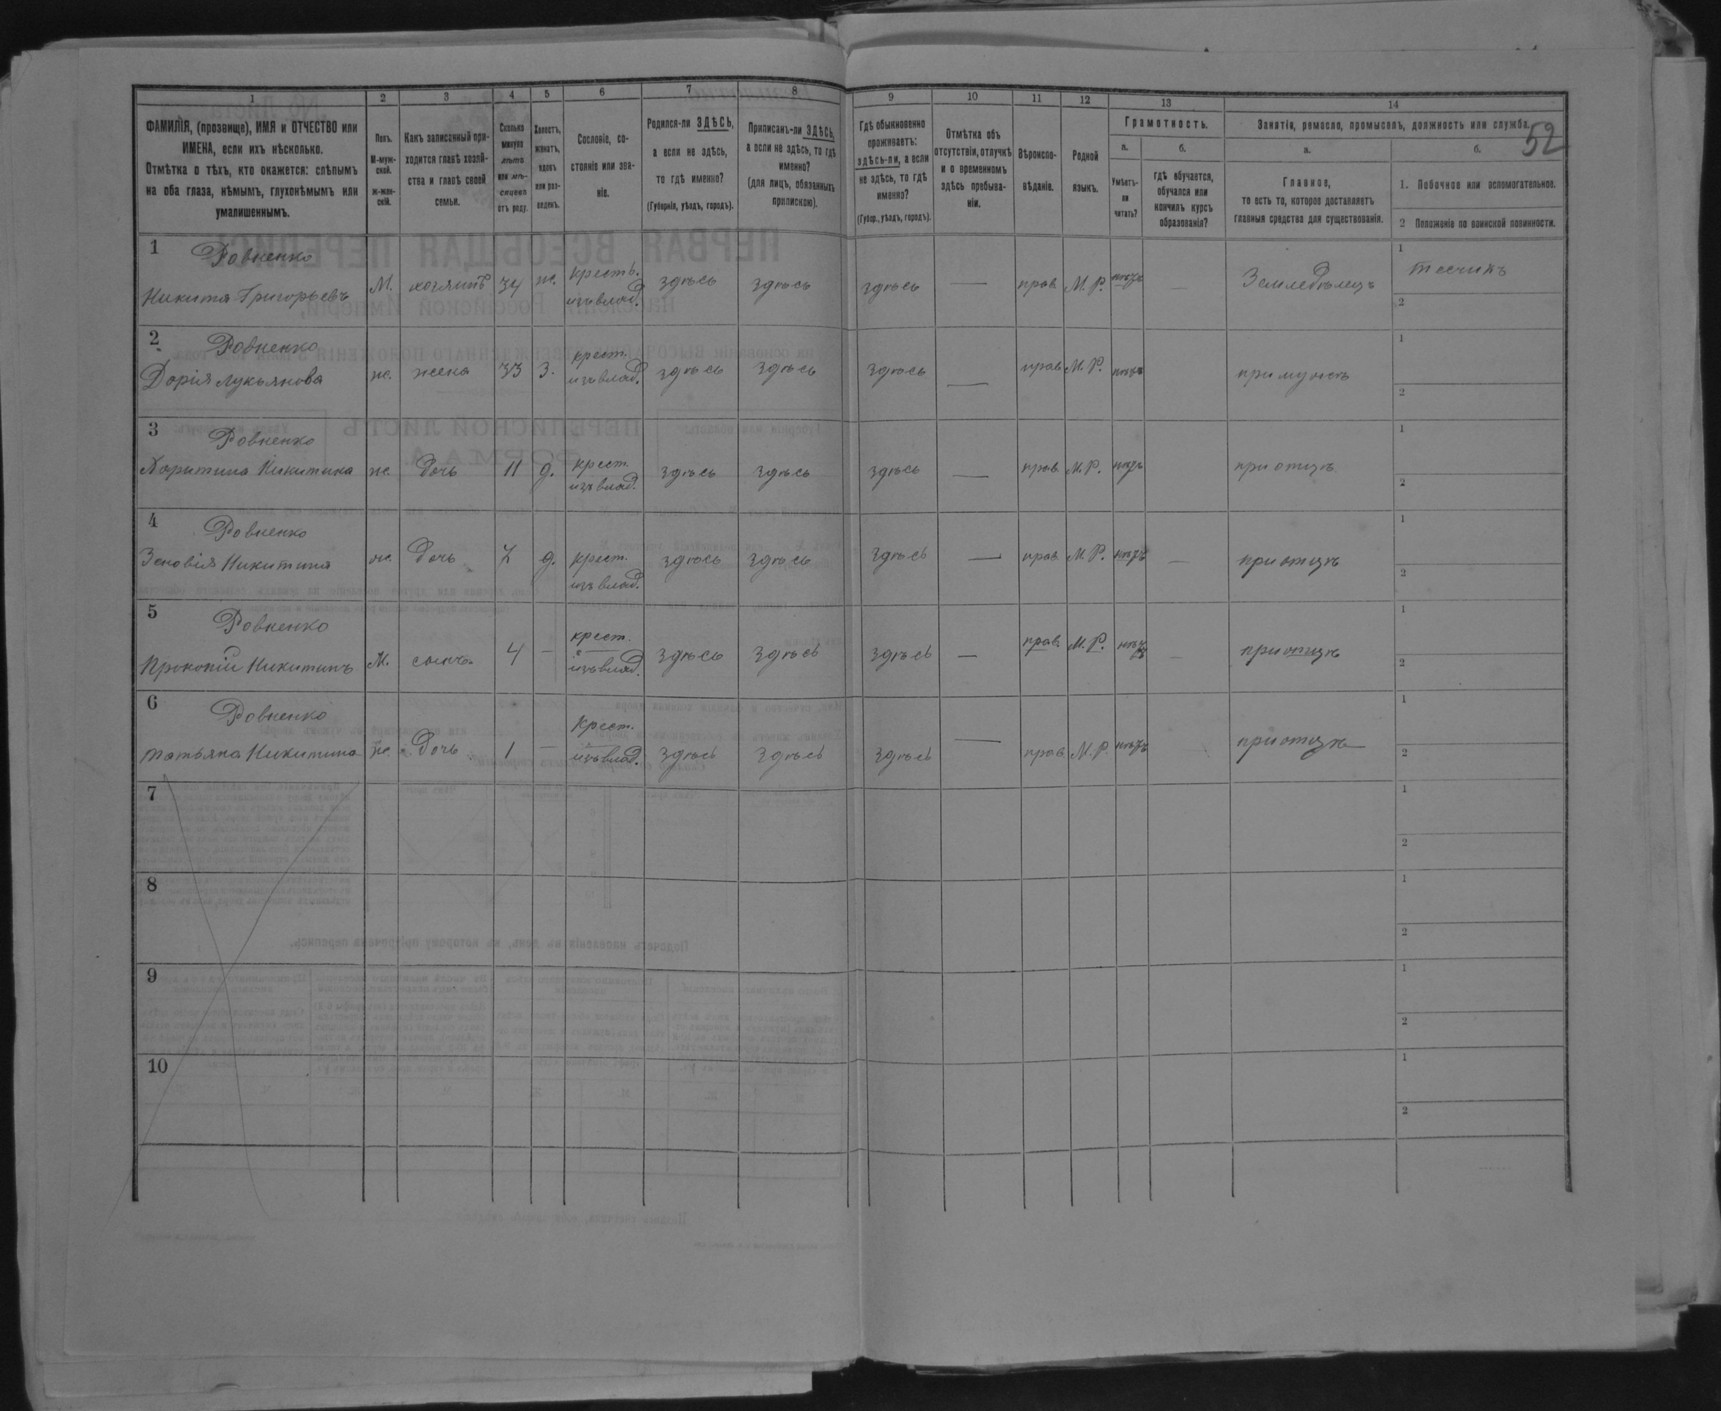 52
1 2 3 4 5 6 7 8 9 10 11 12 13 14
ФАМИЛІЯ, (прозвище), ИМЯ и ОТЧЕСТВО или
ИМЕНА, если ихъ нѣсколько.
Отмѣтка о тѣхъ, кто окажется: слѣпымъ
на оба глаза, нѣмымъ, глухонѣмымъ или
умалишеннымъ.
Полъ.
М-муж-
ской.
ж-жен-
скій.
Какъ записанный при-
ходится главѣ хозяй-
ства и главѣ своей
семьи.
Сколько
минуло
лѣтъ
или мѣ-
сяцевъ
отъ роду.
Холостъ,
женатъ,
вдовъ
или раз-
веденъ.
Сословіе, со-
стояніе или зва-
ніе.
Родился-ли ЗДѢСЬ,
а если не здѣсь,
то гдѣ именно?
(Губернія, уѣздъ, городъ).
Приписанъ-ли ЗДѢСЬ,
а если не здѣсь, то гдѣ
именно?
(для лицъ, обязанныхъ
припискою).
Гдѣ обыкновенно
проживаетъ:
здѣсь-ли, а если
не здѣсь, то гдѣ
именно?
(Губер., уѣздъ, городъ).
Отмѣтка объ
отсутствіи, отлучкѣ
и о временномъ
здѣсь пребыва-
ніи.
Вѣроиспо-
вѣданіе.
Родной
языкъ.
Грамотность.
а.
Умѣетъ-
ли
читать?
б.
гдѣ обучается,
обучался или
кончилъ курсъ
образованія?
Занятіе, ремесло, промыселъ, должность или служба.
а.
Главное,
то есть то, которое доставляетъ
главныя средства для существованія.
б.
1. Побочное или вспомогательное.
2 Положеніе по воинской повинности.
1 Ровненко
Никита Григорьевъ М. хозяинъ 34 ж. крестъ. изъ влад. здѣсь здѣсь здѣсь — прав. М. Р. нѣтъ — Земледѣлецъ
1
2
2 Ровненко
Дарія Лукьянова ж. жена 33 з. крест. изъ влад. здѣсь здѣсь здѣсь — прав. М. Р. нѣтъ при мужѣ
1
2
3 Ровненко
Харитина Никитина ж. дочь 11 д. крест. изъ влад. здѣсь здѣсь здѣсь — прав. М. Р. нѣтъ при отцѣ
1
2
4 Ровненко
Зеновія Никитина ж. дочь 7 д. крест. изъ влад. здѣсь здѣсь здѣсь — прав. М. Р. нѣтъ — при отцѣ
1
2
5 Ровненко
Прокопій Никитинъ М. сынъ 4 — крест. изъ влад. здѣсь здѣсь здѣсь — прав. М. Р. нѣтъ — при отцѣ
1
2
6 Ровненко
Татьяна Никитина ж. дочь 1 — Крест. изъ влад. здѣсь здѣсь здѣсь — прав. М. Р. нѣтъ при отцѣ
1
2
7
1
2
8
1
2
9
1
2
10
1
2